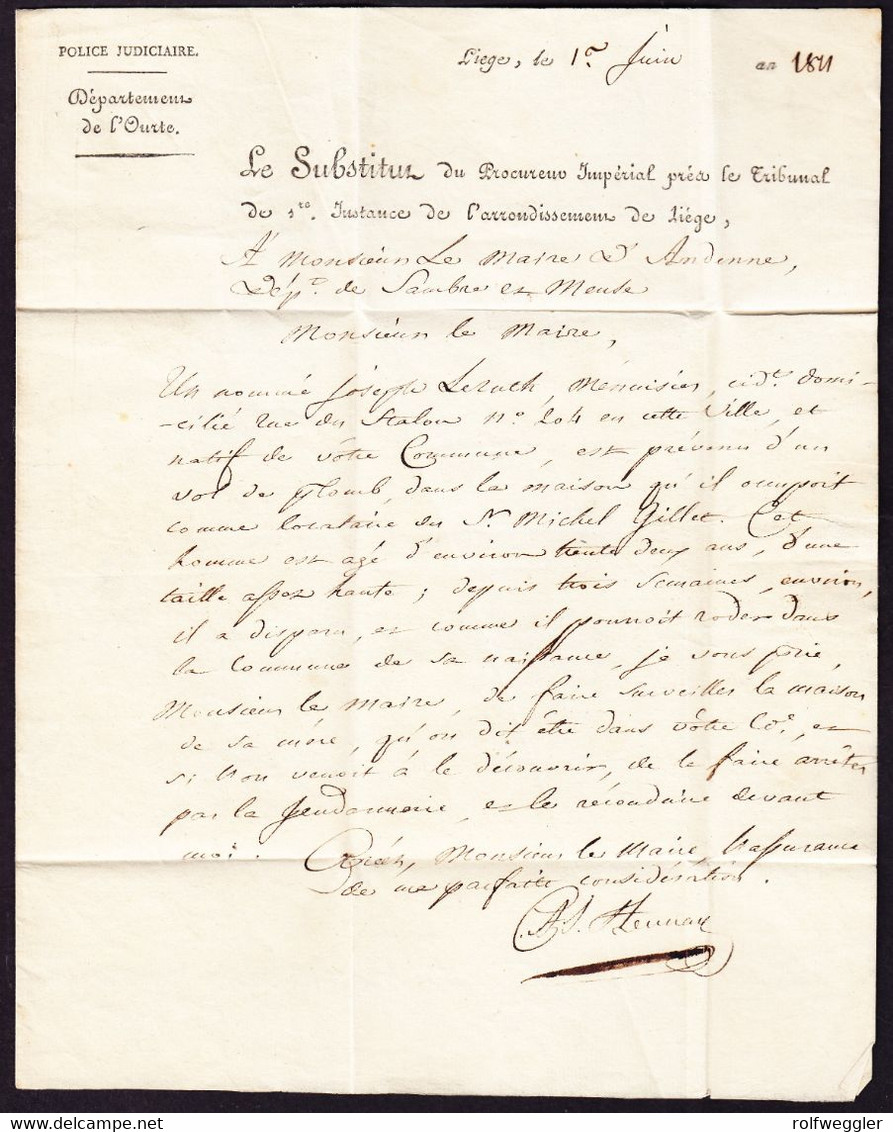 POLICE JUDICIAIRE.
Département
de l'Ourte.
Liege, le 1er Juin an 1811
Le Substitut du Procureur Impérial près le Tribunal
de 1re. Instance de l'arrondissement de Liége,
A Monsieur Le Maire D'Andenne,
Dépt. de Sambre et Meuse
Monsieur le Maire,
Un nommé Joseph , Menuisier, cidt. domi-
-cilié rue du Stalon n° 204 en cette Ville, et
natif de vôtre Commune, est prévenu d'un
vol de plomb, dans la maison qu'il occupoit
comme locataire du Sr. Michel Gillet. Cet
homme est agé d'environ trente deux ans, d'une
taille assez haute; depuis trois Semaines, environ,
il a disparu, et comme il pourroit roder dans
la Commune de sa naissance, je vous prie,
Monsieur le Maire, de faire surveiller la maison
de sa mére, qu'on dit être dans vôtre Coe., et
si l'on venoit à le découvrir, de le faire arrêter
par la Gendarmerie, et le réconduire devant
moi. Agréez, Monsieur le Maire, l'assurance
de ma parfaite considération.
delcampe.net
rolfweggler